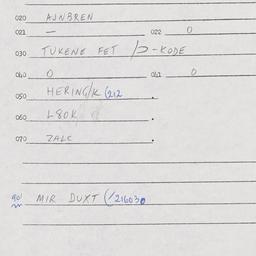 020 AJNBREN
021 — 022 0
030 TUKENE FET / - KODE
040 0 041 0
050 HERING/K (212
060 L80K
070 ZALC
90/ MIR DUXT (/216030